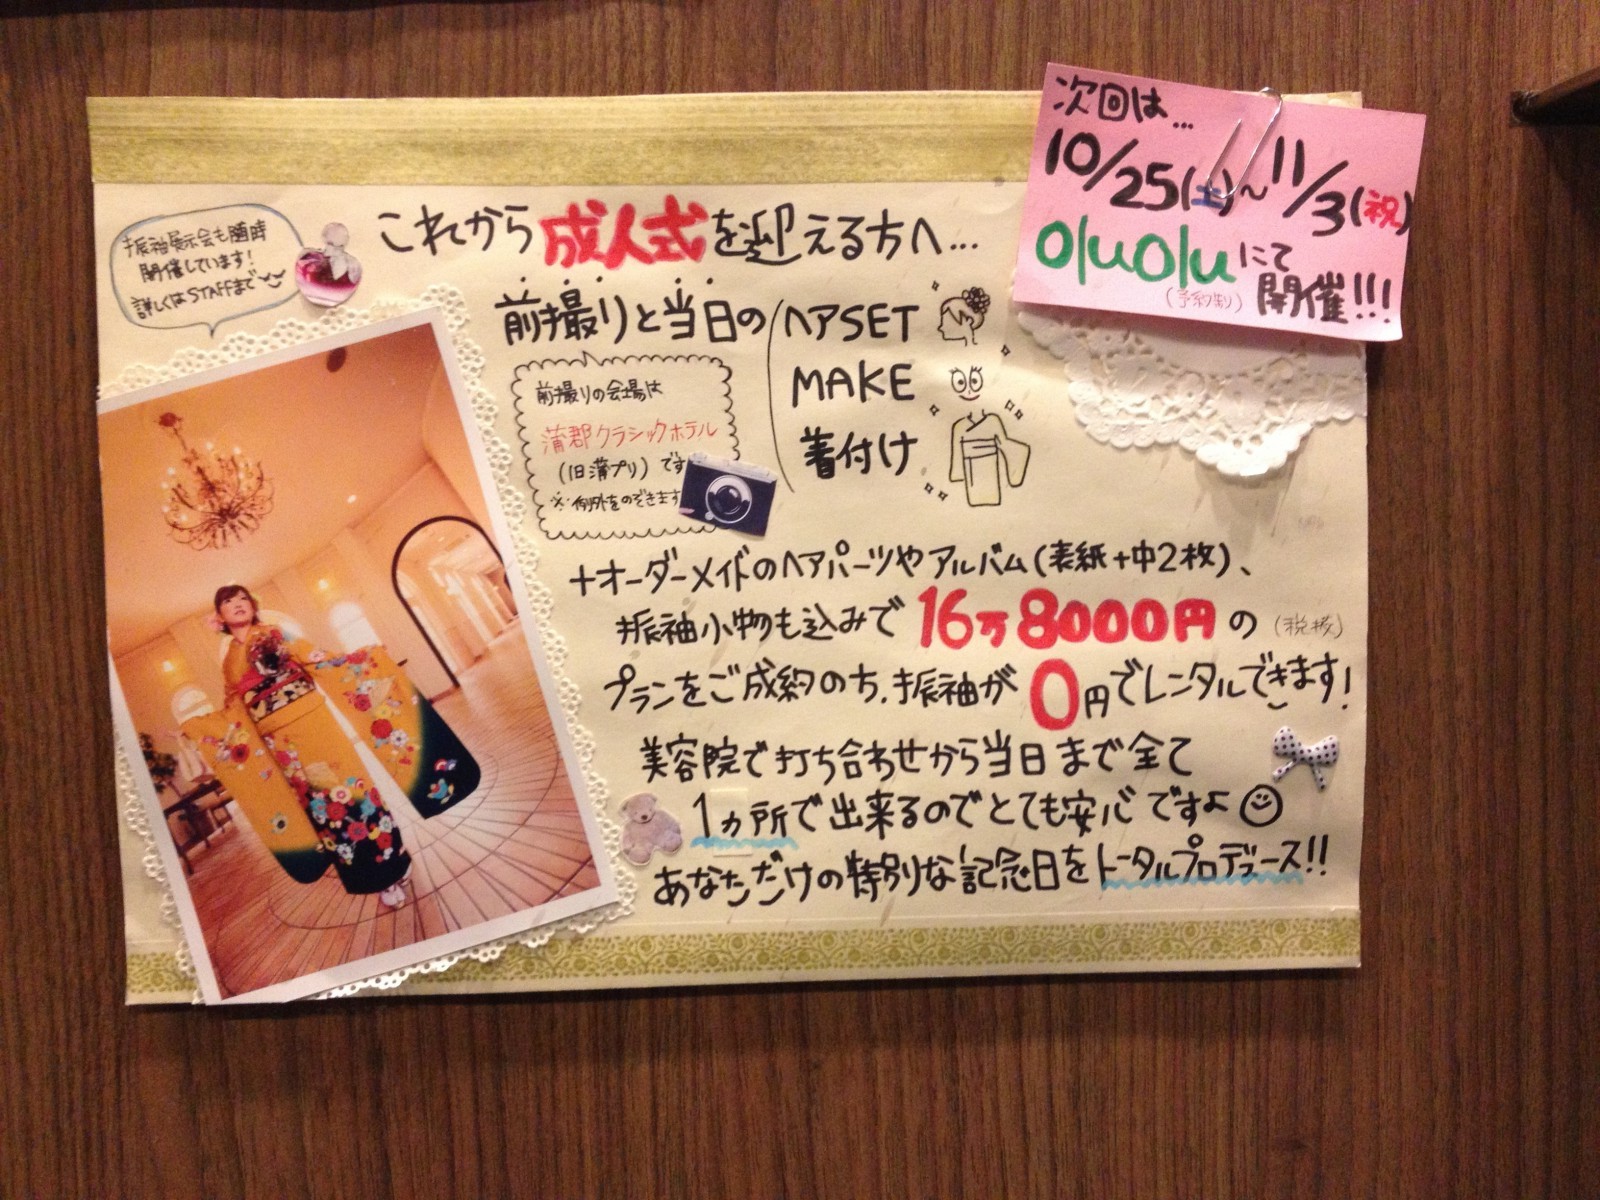 次回は…
10/25(土)~11/3(祝)
OluOluにて
(予約制) 開催!!!
振袖展示会も随時
開催しています!
詳しくはSTAFFまで
これから成人式を迎える方へ…
前撮りと当日の
ヘアSET
MAKE
着付け
前撮りの会場は
蒲郡クラシックホテル
(旧蒲プリ)です
※例外をのぞきます
+オーダーメイドのヘアパーツやアルバム(表紙+中2枚)、
振袖小物も込みで16万8000円の(税抜)
プランをご成約のち、振袖が0円でレンタルできます!
美容院で打ち合わせから当日まで全て
1ヵ所で出来るのでとても安心ですよ
あなただけの特別な記念日をトータルプロデュース!!